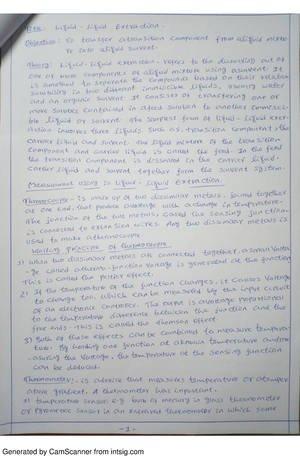 Title: Liquid - Liquid Extraction.
Objective: To transfer a transition component from a liquid mixture
to into a liquid solvent.
Theory: Liquid-Liquid extraction - refers to the dissolving out of
one or more components of a liquid mixture using a solvent. It
is a method to separate the compounds based on their relative
solubility in two different immiscible liquids, usually water
and an organic solvent. It consists of transferring one or
more solutes contained in a feed solution to another immisci-
ble liquid or solvent. The simplest form of liquid-liquid extr-
action involves three liquids, such as, transition component, the
carrier liquid and solvent. The liquid mixture of the transition
component and carrier liquid is called the feed. In the feed
the transition component is dissolved in the carrier liquid.
Carrier liquid and solvent together form the solvent system.
Measurement using in liquid-liquid extraction.
Thermocouple:- is made up of two dissimilar metals, joined together
at one end, that produce a voltage with a change in temperature.
The junction of the two metals, called the sensing junction,
is connected to extension wires. Any two dissimilar metals is
used to make a thermocouple.
Working principle of thermocouple
1) When two dissimilar metals are connected together, a small volta-
ge called a thermo-junction voltage is generated at the junction
This is called the peltier effect.
2) If the temperature of the junction changes, it causes voltage
to change too, which can be measured by the input circuits
of an electronic controller. The output is a voltage proportional
to the temperature difference between the junction and the
free ends. This is called the thomson effect
3) Both of these effects can be combined to measure tempera-
ture. By holding one junction at a known temperature and me-
asuring the voltage, the temperature at the sensing junction
can be deduced.
Thermometer: is a device that measures temperature or a temper-
ature gradient. A thermometer has important
1) temperature sensor e.g. bulb of mercury in glass thermometer
or pyrometric sensor in an infrared thermometer in which some
-1-
Generated by CamScanner from intsig.com